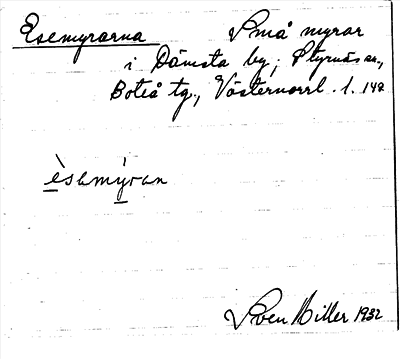 Esemyrarna Små myrar
i Dämsta by, Styrnäs sn.,
Boteå tg., Västernorrl. l. 142
èsemýran
Sven Miller 1932